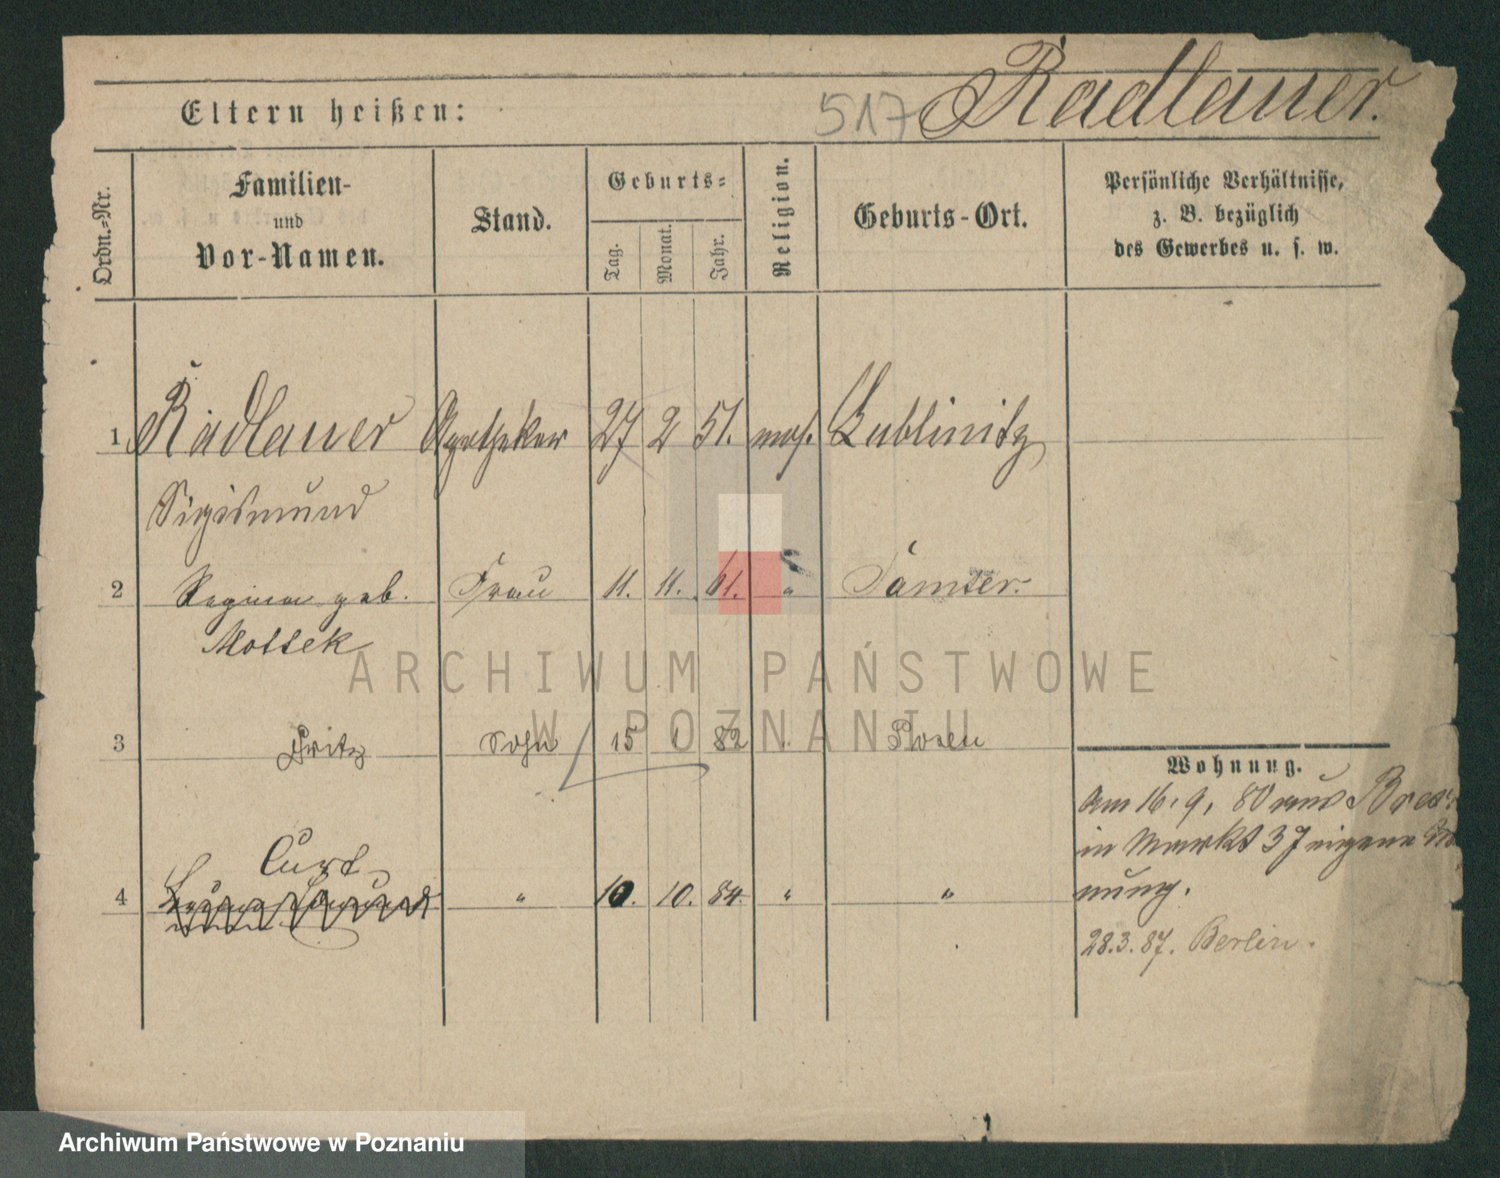 Eltern heißen: 517 Radlauer.
Ordn.-Nr.
Familien-
und
Vor-Namen.
Stand.
Geburts-
Tag. Monat. Jahr.
Religion.
Geburts-Ort.
Persönliche Verhältnisse,
z. B. bezüglich
des Gewerbes u. s. w.
1 Radlauer Apotheker 27 2 51. mos. Lublinitz
Sigismund
2 Regina geb. Frau 11. 11. 61. " Samter.
Mottek
3 Fritz Sohn 15 1 82 Posen
4 Curt " 10. 10. 84. " "
Wohnung.
Am 16. 9. 80 aus Bres
in Markt 37 eigene Wo
nung.
28.3.87. Berlin.
ARCHIWUM PAŃSTWOWE
W POZNANIU
Archiwum Państwowe w Poznaniu